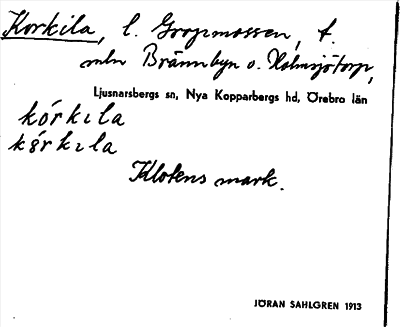 Korkila, l. Gropmossen, t.
mln Brännbyn o. Holmsjötorp,
Ljusnarsbergs sn, Nya Kopparbergs hd, Örebro län
kórkıla
kórkıla
Klotens mark.
JÖRAN SAHLGREN 1913